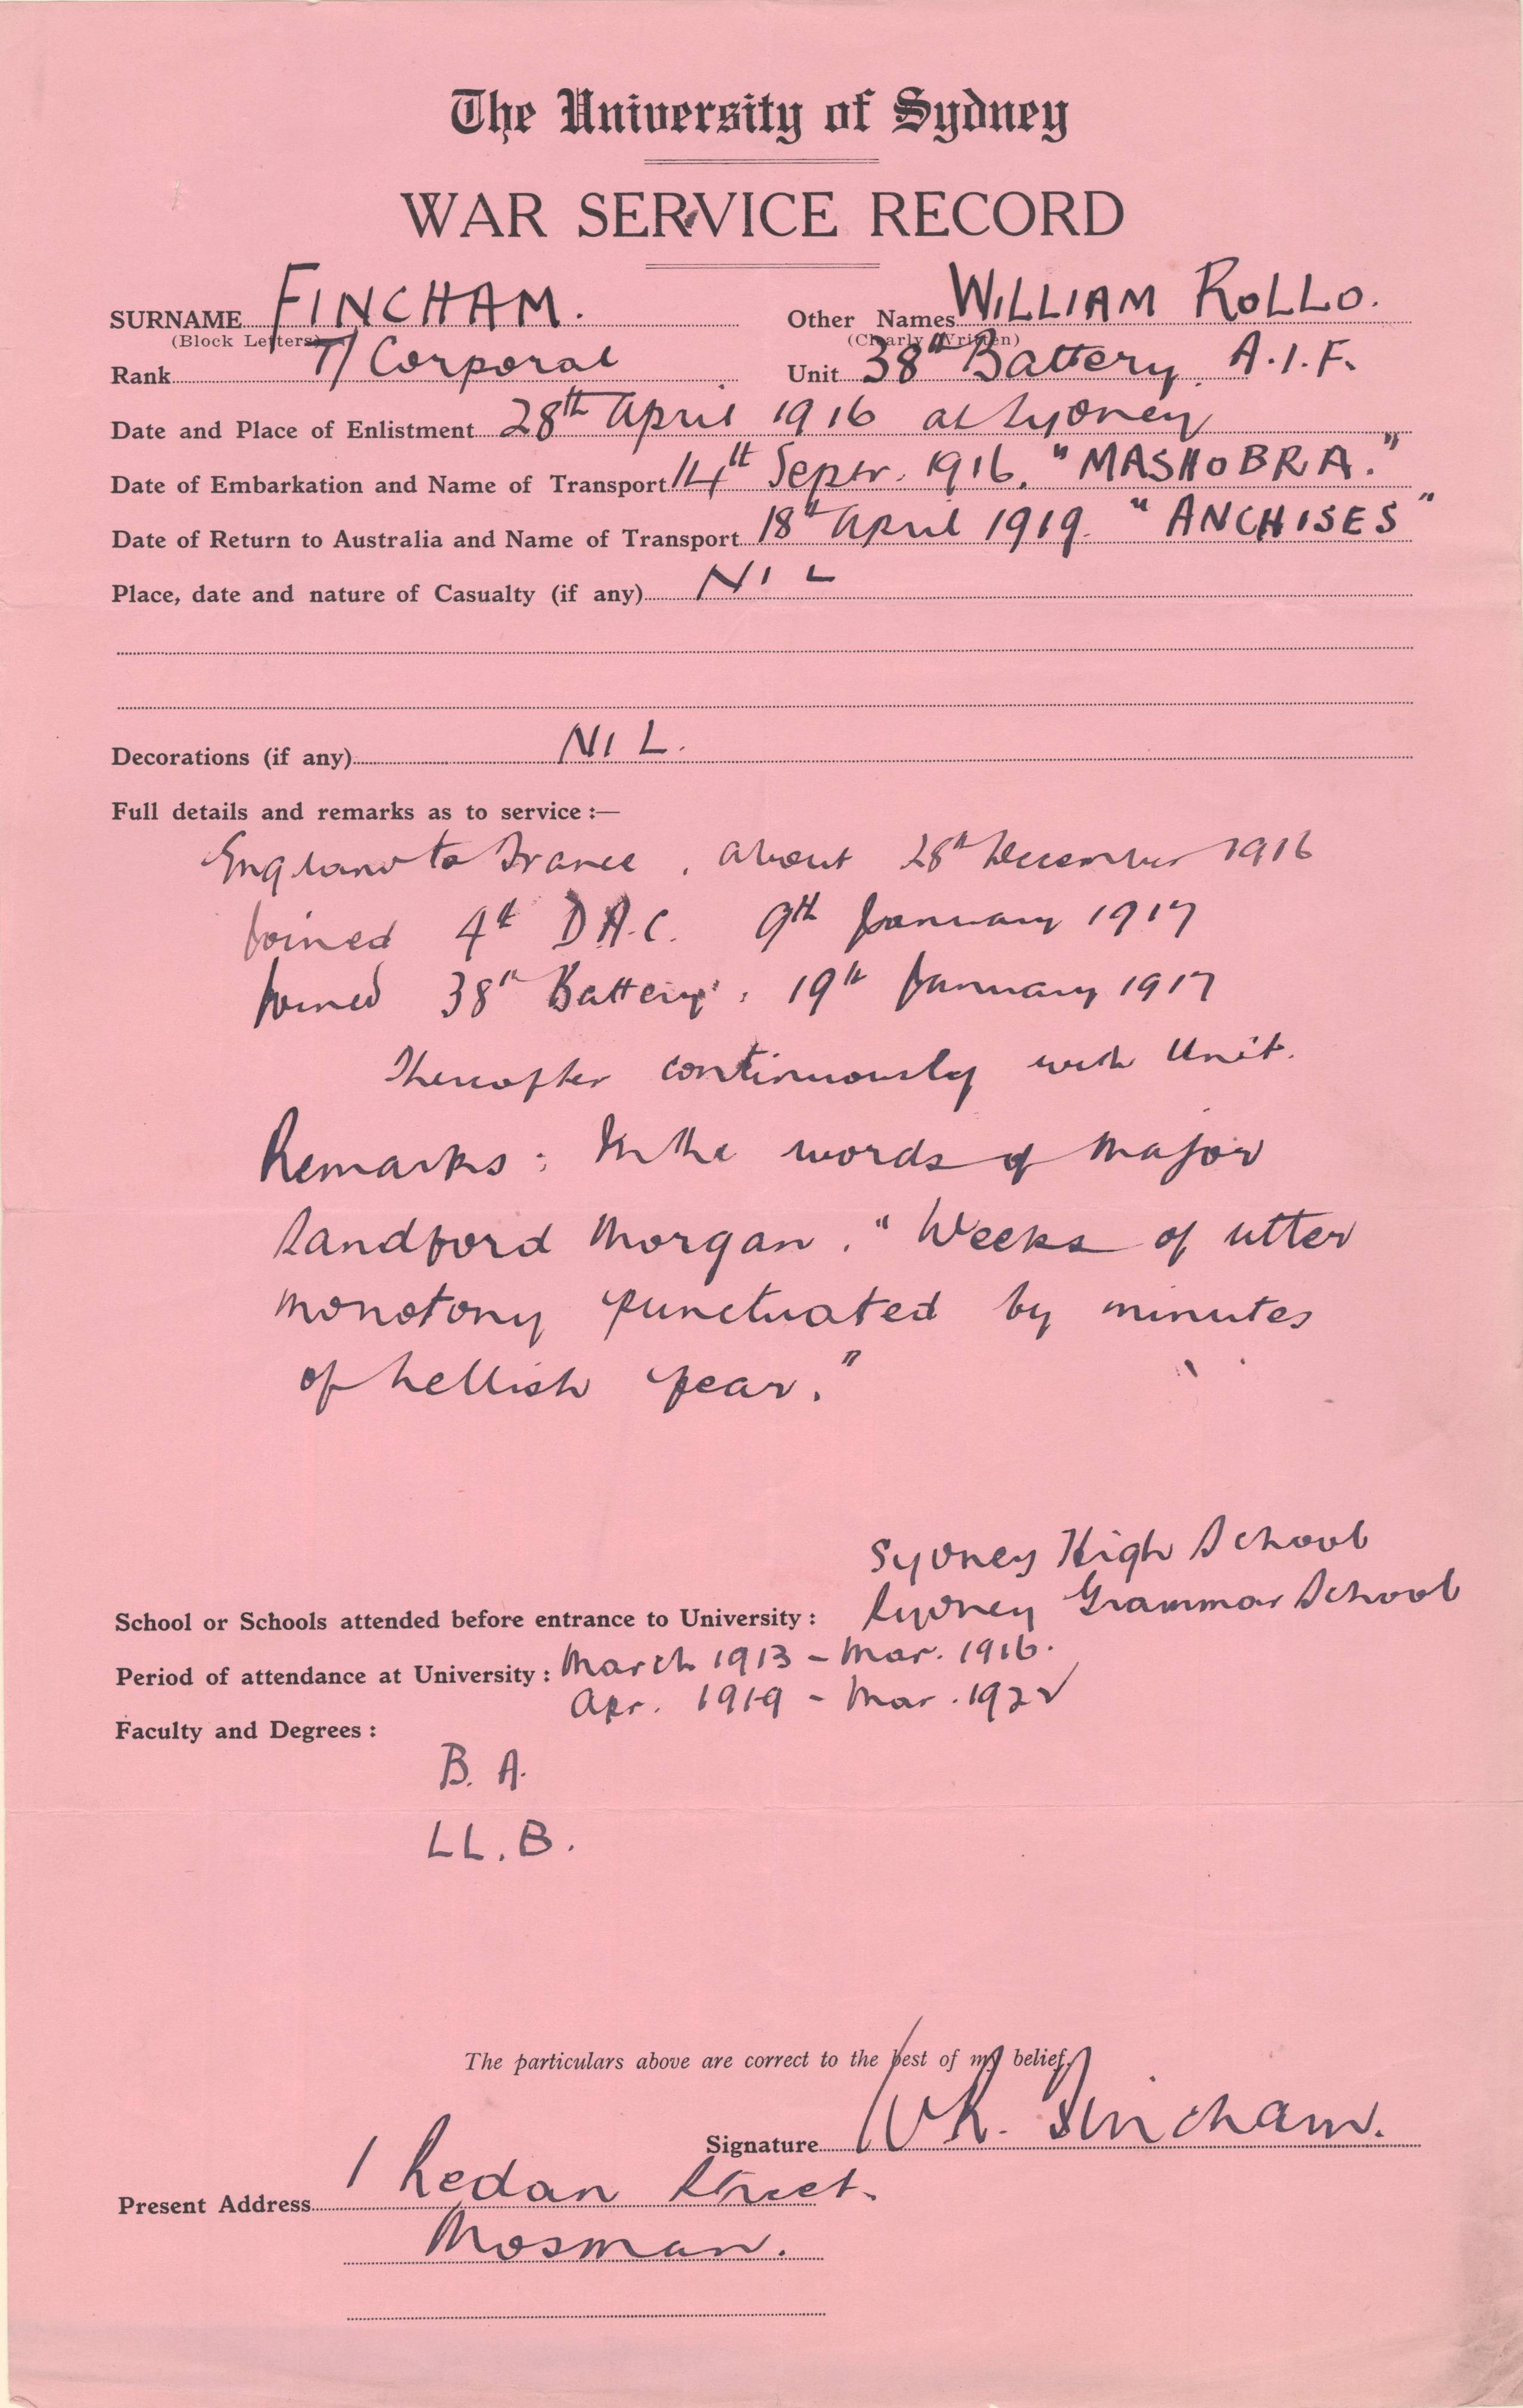 The University of Sydney
WAR SERVICE RECORD
SURNAME FINCHAM. Other Names WILLIAM ROLLO.
(Block Letters) (Clearly Written)
Rank T/ Corporal Unit 38th Battery, A.I.F.
Date and Place of Enlistment 28th April 1916 at Sydney
Date of Embarkation and Name of Transport 14th Septr. 1916. "MASHOBRA."
Date of Return to Australia and Name of Transport 18th April 1919. "ANCHISES"
Place, date and nature of Casualty (if any) NIL
Decorations (if any) NIL.
Full details and remarks as to service :—
England to France, about 28th December 1916
Joined 4th D.A.C. 9th January 1917
Joined 38th Battery, 19th January 1917
Thereafter continuously with Unit.
Remarks: In the words of Major
Sandford Morgan. "Weeks of utter
monotony punctuated by minutes
of hellish fear."
Sydney High School
School or Schools attended before entrance to University : Sydney Grammar School
Period of attendance at University : March 1913 - Mar. 1916.
Apr. 1919 - Mar. 1922
Faculty and Degrees :
B. A.
LL. B.
The particulars above are correct to the best of my belief,
Signature W R. Fincham.
Present Address 1 Redan Street.
Mosman.